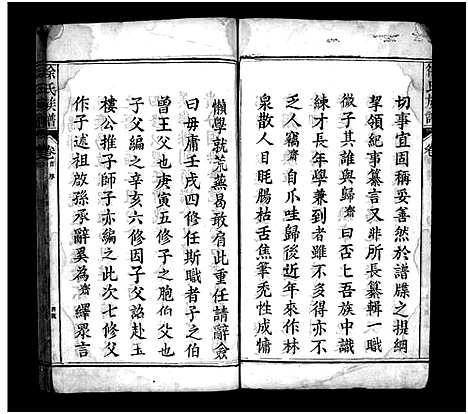 切事宜固稱妥善然於譜牒之提綱
挈領紀事纂言又非所長纂輯一職
微子其誰與歸濟曰否上吾族中識
練才長年學兼到者雖不可多得亦不
乏人竊濟自爪哇歸後近年來在林
泉散人目眊腸枯舌焦筆禿性成慵
懶學就荒蕪曷敢肩此重任請辭僉
曰毋庸壬戌四修任斯職者子之伯
曾王父也庚寅五修子之胞伯父也
子父編之辛亥六修因子父詒赴玉
樓公推子師子亦編之此次七修父
作子述祖啟孫承辭奚為濟繹眾言
徐氏族譜
卷首 序
徐氏族譜
卷